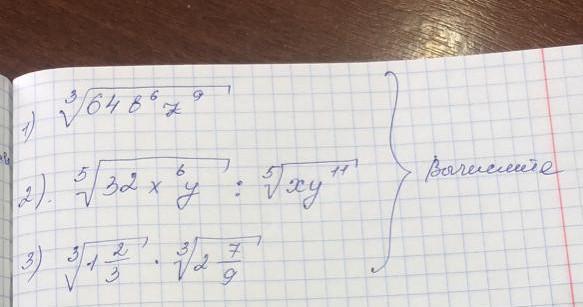 1) ∛(64 b⁶ z⁹)
2). ⁵√(32 x⁶ y) : ⁵√(xy¹¹)
3) ∛(1 2/3) · ∛(2 7/9)
Вычислите